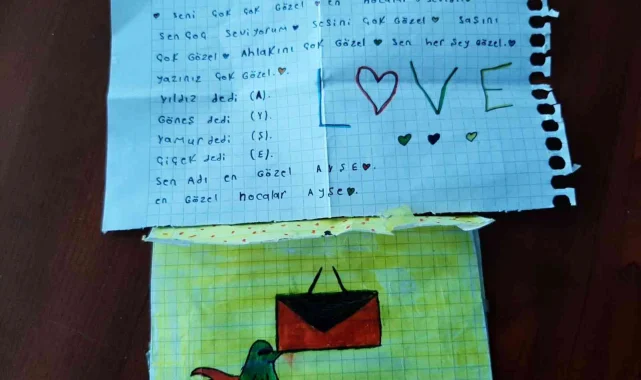 ♥ seni çok çok Gözel ♥ en hocalar
sen çoç seviyorum ♥ sesini çok Gözel ♥ saşını
çok Gözel ♥ Ahlakını çok Gözel ♥ sen her şey Gözel.♥
yazınız çok Gözel.♥.
LOVE
yıldız dedi (A).
Güneş dedi (Y).
yamur dedi (Ş).
çiçek dedi (E).
sen Adı en Gözel AYŞE♥.
en Gözel hocalar AYşe♥.